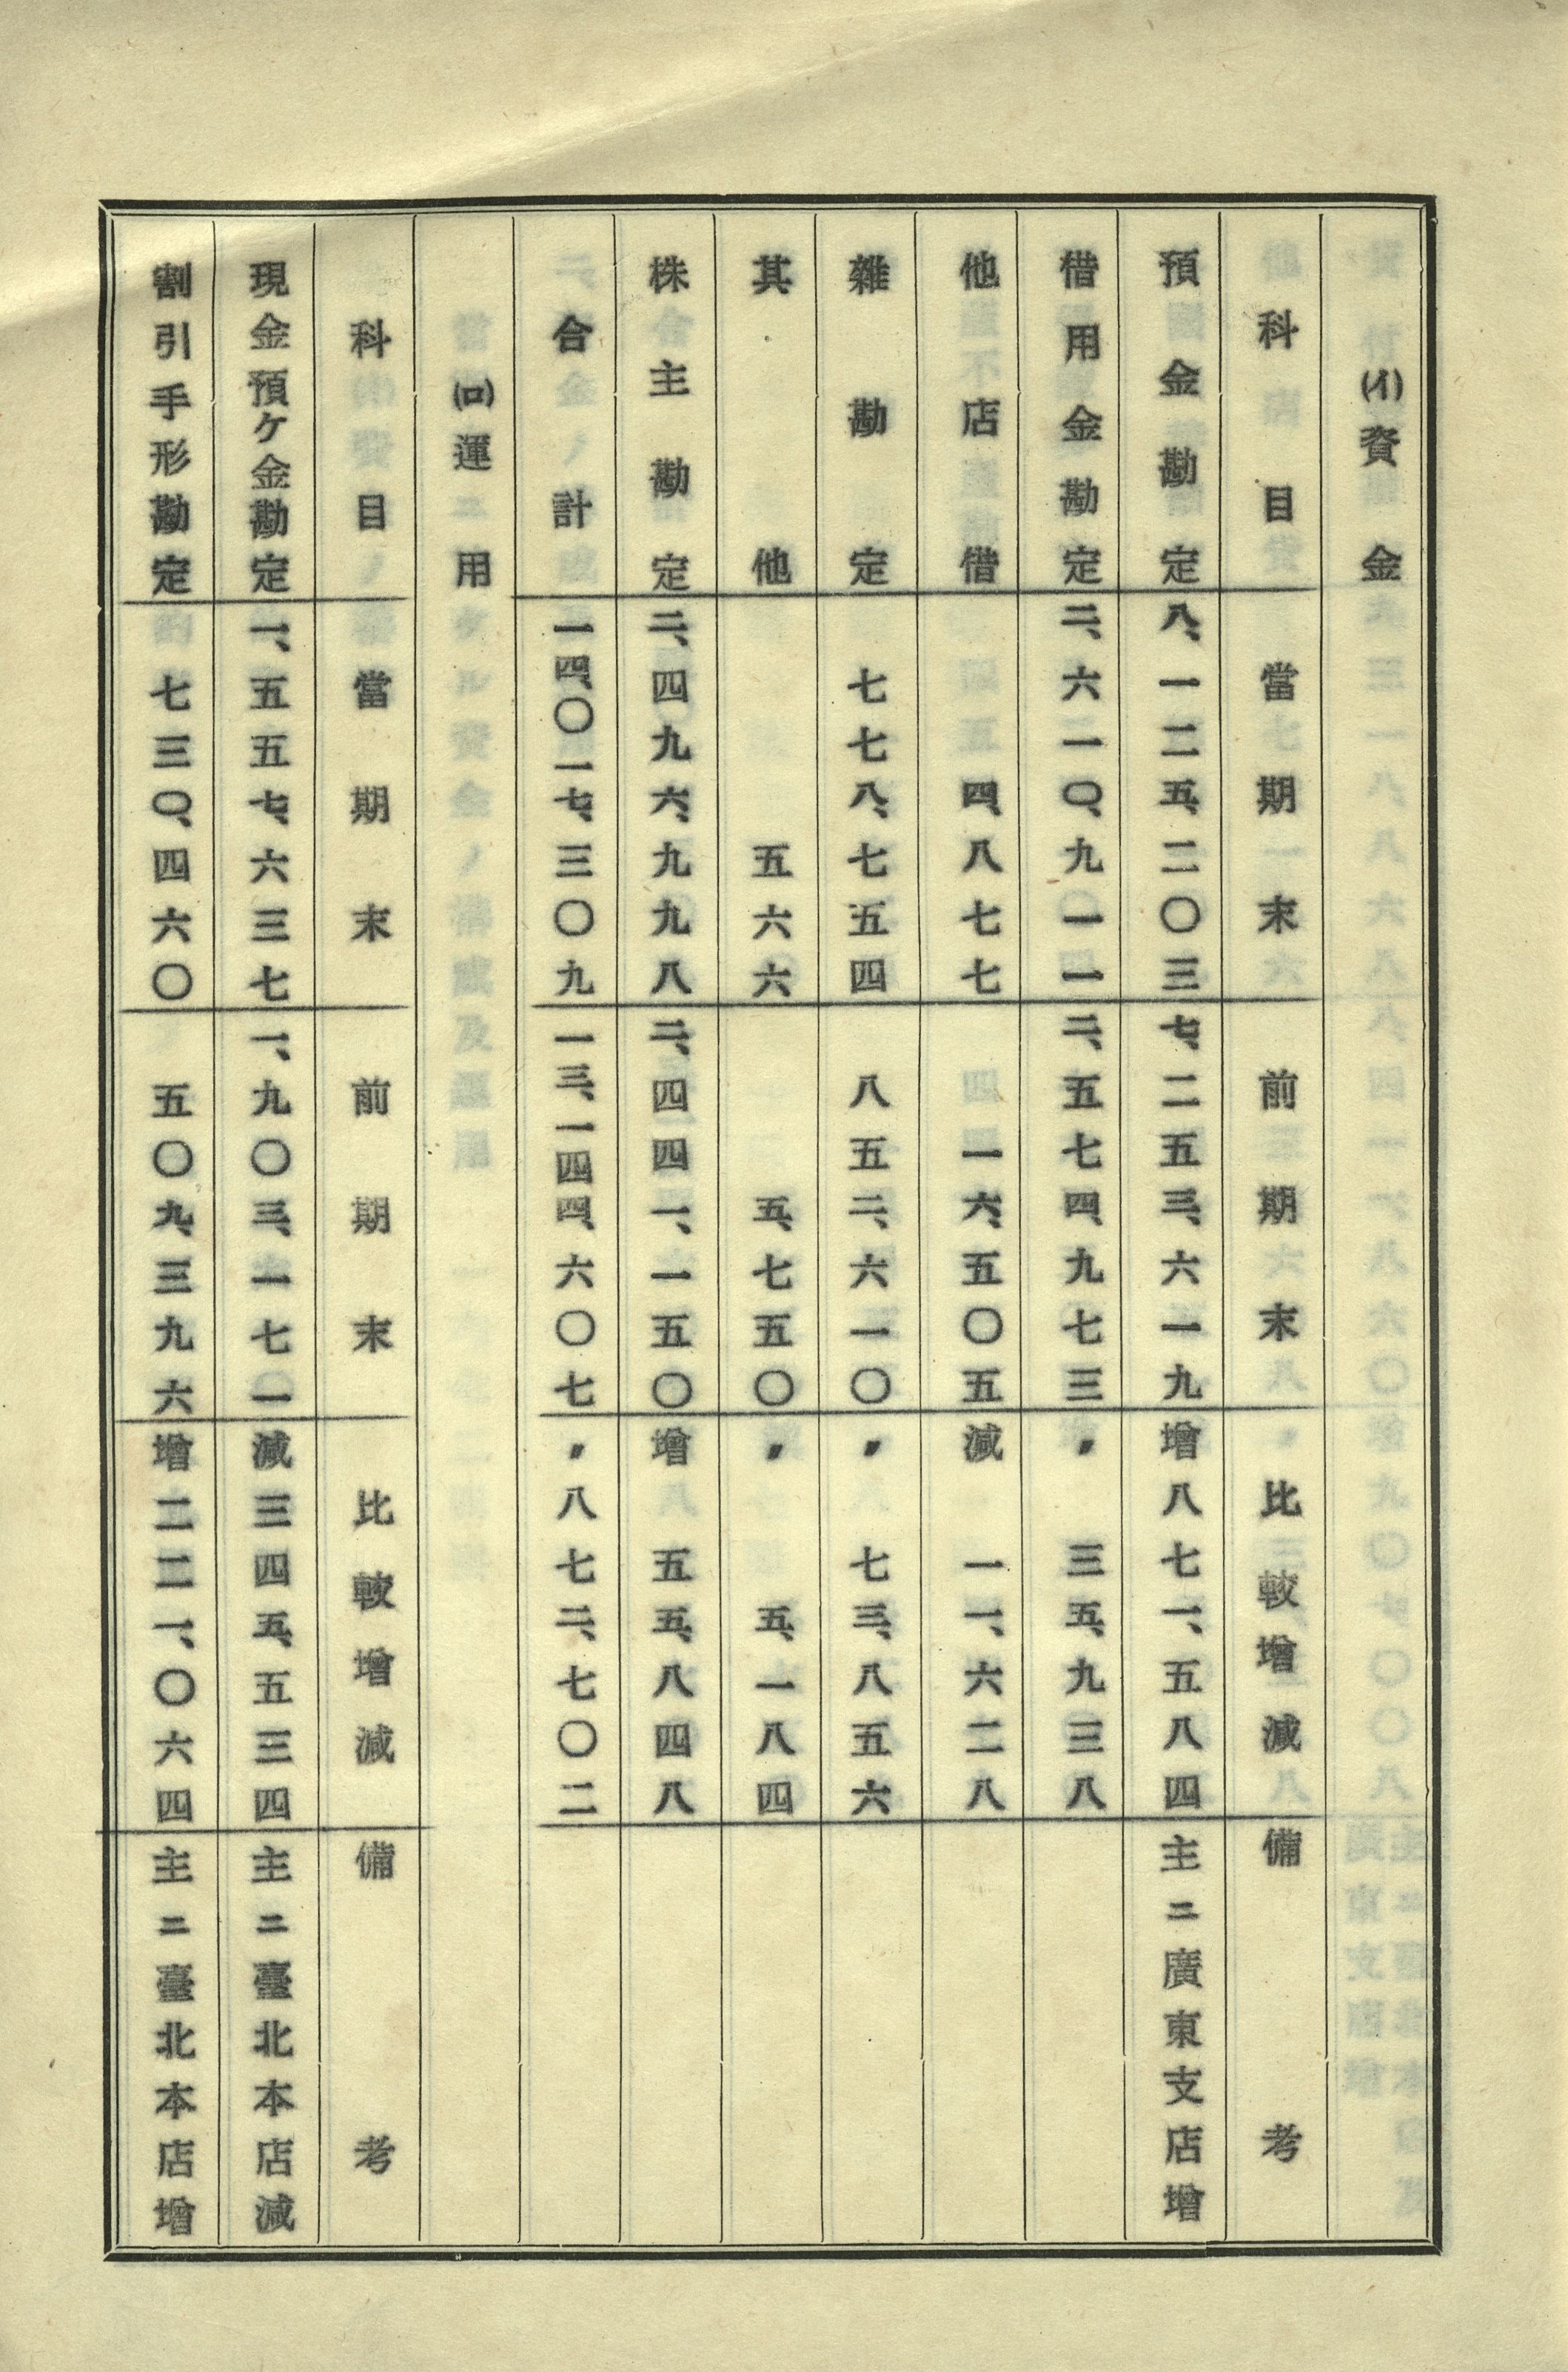 (イ)資金
科目 當期末 前期末 比較增減 備考
預金勘定 八、一二五、二〇三 七、二五三、六一九 增八七一、五八四 主ニ廣東支店增
借用金勘定 二、六一〇、九一一 二、五七四、九七三 〃三五、九三八
他店借 四、八七七 一六、五〇五 減一一、六二八
雜勘定 七七八、七五四 八五二、六一〇 〃七三、八五六
其他 五六六 五、七五〇 〃五、一八四
株主勘定 二、四九六、九九八 二、四四一、一五〇 增五五、八四八
合計 一四、〇一七、三〇九 一三、一四四、六〇七 〃八七二、七〇二
(ロ)運用
科目 當期末 前期末 比較增減 備考
現金預ケ金勘定 一、五五七、六三七 一、九〇三、一七一 減三四五、五三四 主ニ臺北本店減
割引手形勘定 七三〇、四六〇 五〇九、三九六 增二二一、〇六四 主ニ臺北本店增